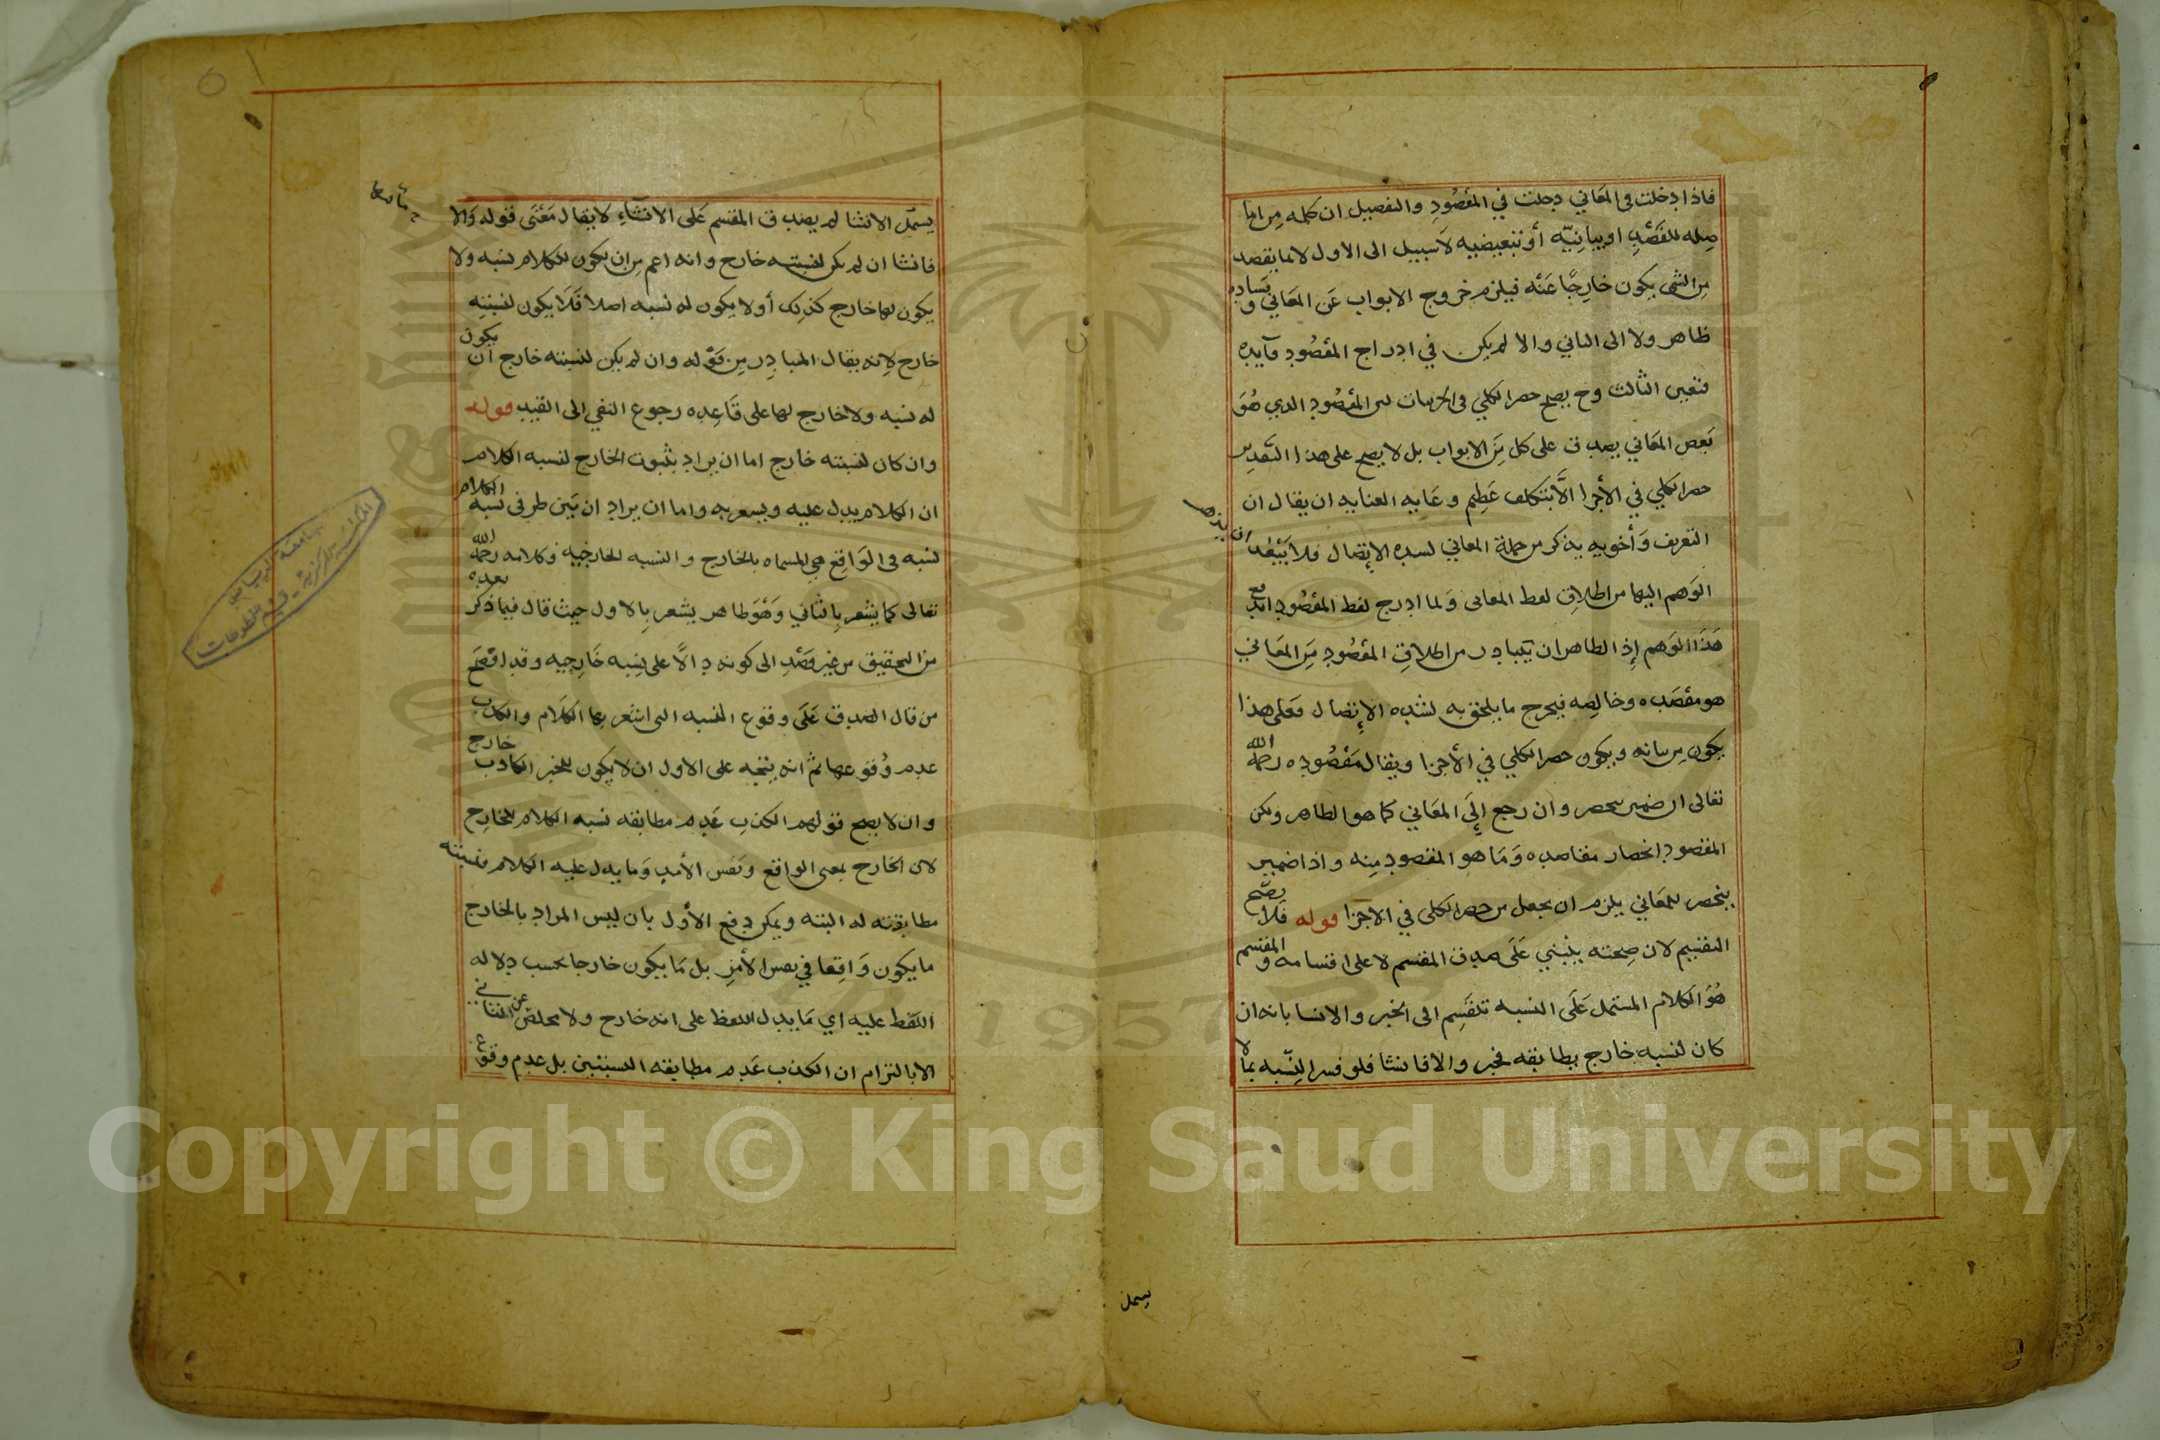 فاذا دخلت فى المعاني دخلت في المقصود والتفصيل ان كلمه من اما
صله للقصد او بيانيه أو تبعيضيه لا سبيل الى الاول لان ما يقصد
من الشى يكون خارجًا عنه فيلزم خروج الابواب عن المعاني وفساده
ظاهر ولا الى الثاني والا لم يكن في ادراج المقصود فايده
فتعين الثالث وح يصح حصر الكلي فى الجزييات لان المقصود الذي هو
بعض المعاني يصدق على كل من الابواب بل لا يصح على هذا التقدير
حصر الكلي في الأجزا الا بتكلف عظيم وغايه العنايه ان يقال ان
التعريف وأخويه يذكر من جملة المعاني لشده الإتصال فلا يبعد ان يذهب
الوهم اليها من اطلاق لفظ المعانى ولما ادرج لفظ المقصود اندفع
هذا الوهم إذ الظاهر ان يتبادر من اطلاق المقصود من المعاني
هو مقصده وخالصه فيخرج ما يلحق به لشده الإتصال فعلى هذا
يكون من بيانه ويكون حصر الكلي في الأجزا ويقال مقصوده رحمه الله
تعالى ان ضمير ينحصر وان رجع إلى المعاني كما هو الظاهر ولكن
المقصود انحصار مقاصده وما هو المقصود منه واذا ضمير
ينحصر للمعاني يلزم ان يجعل من حصر الكلي في الاجزا قوله فلا يصح
التقسيم لان صحته ينبني على صدق المقسم لا على اقسامه والمقسم
هو الكلام المشتمل على النسبه تنقسم الى الخبر والانشا بانه ان
كان لنسبه خارج يطابقه فخبر والا فانشا فلو فسر النسبه بما لا
يشمل
يشمل الانشا لم يصدق المقسم على الانشاء لا يقال معنى قوله والا
فانشا ان لم يكن لنسبته خارج وانه اعم من ان يكون للكلام نسبه ولا
يكون لها خارج كذلك أو لا يكون له نسبه اصلا فلا يكون لنسبته
خارج لانه يقال المبادر من قوله وان لم يكن لنسبته خارج ان يكون
له نسبه ولا خارج لها على قاعده رجوع النفي الى القيد قوله
وان كان لنسبته خارج اما ان يراد بثبوت الخارج لنسبه الكلام
ان الكلام يدل عليه ويشعر به واما ان يراد ان بين طرفى نسبة الكلام
نسبه فى الواقع هي المسماه بالخارج والنسبه الخارجيه وكلامه رحمه الله
تعالى كما يشعر بالثاني وهو ظاهر يشعر بالاول حيث قال فيما ذكر بعده
من التحقيق من غير قصد الى كونه دالًا على نسبه خارجيه وقد افصح
من قال الصدق على وقوع النسبه التى اشعر بها الكلام والكذب
عدم وقوعها ثم انه يتجه على الاول ان لا يكون للخبر الكاذب خارج
وان لا يصح قولهم الكذب عدم مطابقه نسبه الكلام للخارج
لان الخارج بمعنى الواقع ونفس الأمر وما يدل عليه الكلام فنسبته
مطابقته له البته ويمكن دفع الأول بان ليس المراد بالخارج
ما يكون واقعا في نفس الأمر بل ما يكون خارجا بحسب دلاله
اللفظ عليه اي ما يدل اللفظ على انه خارج ولا مخلص عن الثاني
الا بالتزام ان الكذب عدم مطابقه النسبتين بل عدم وقوع
جامعة الرياض
المكتبة المركزية - قسم المخطوطات
1957
Copyright © King Saud University